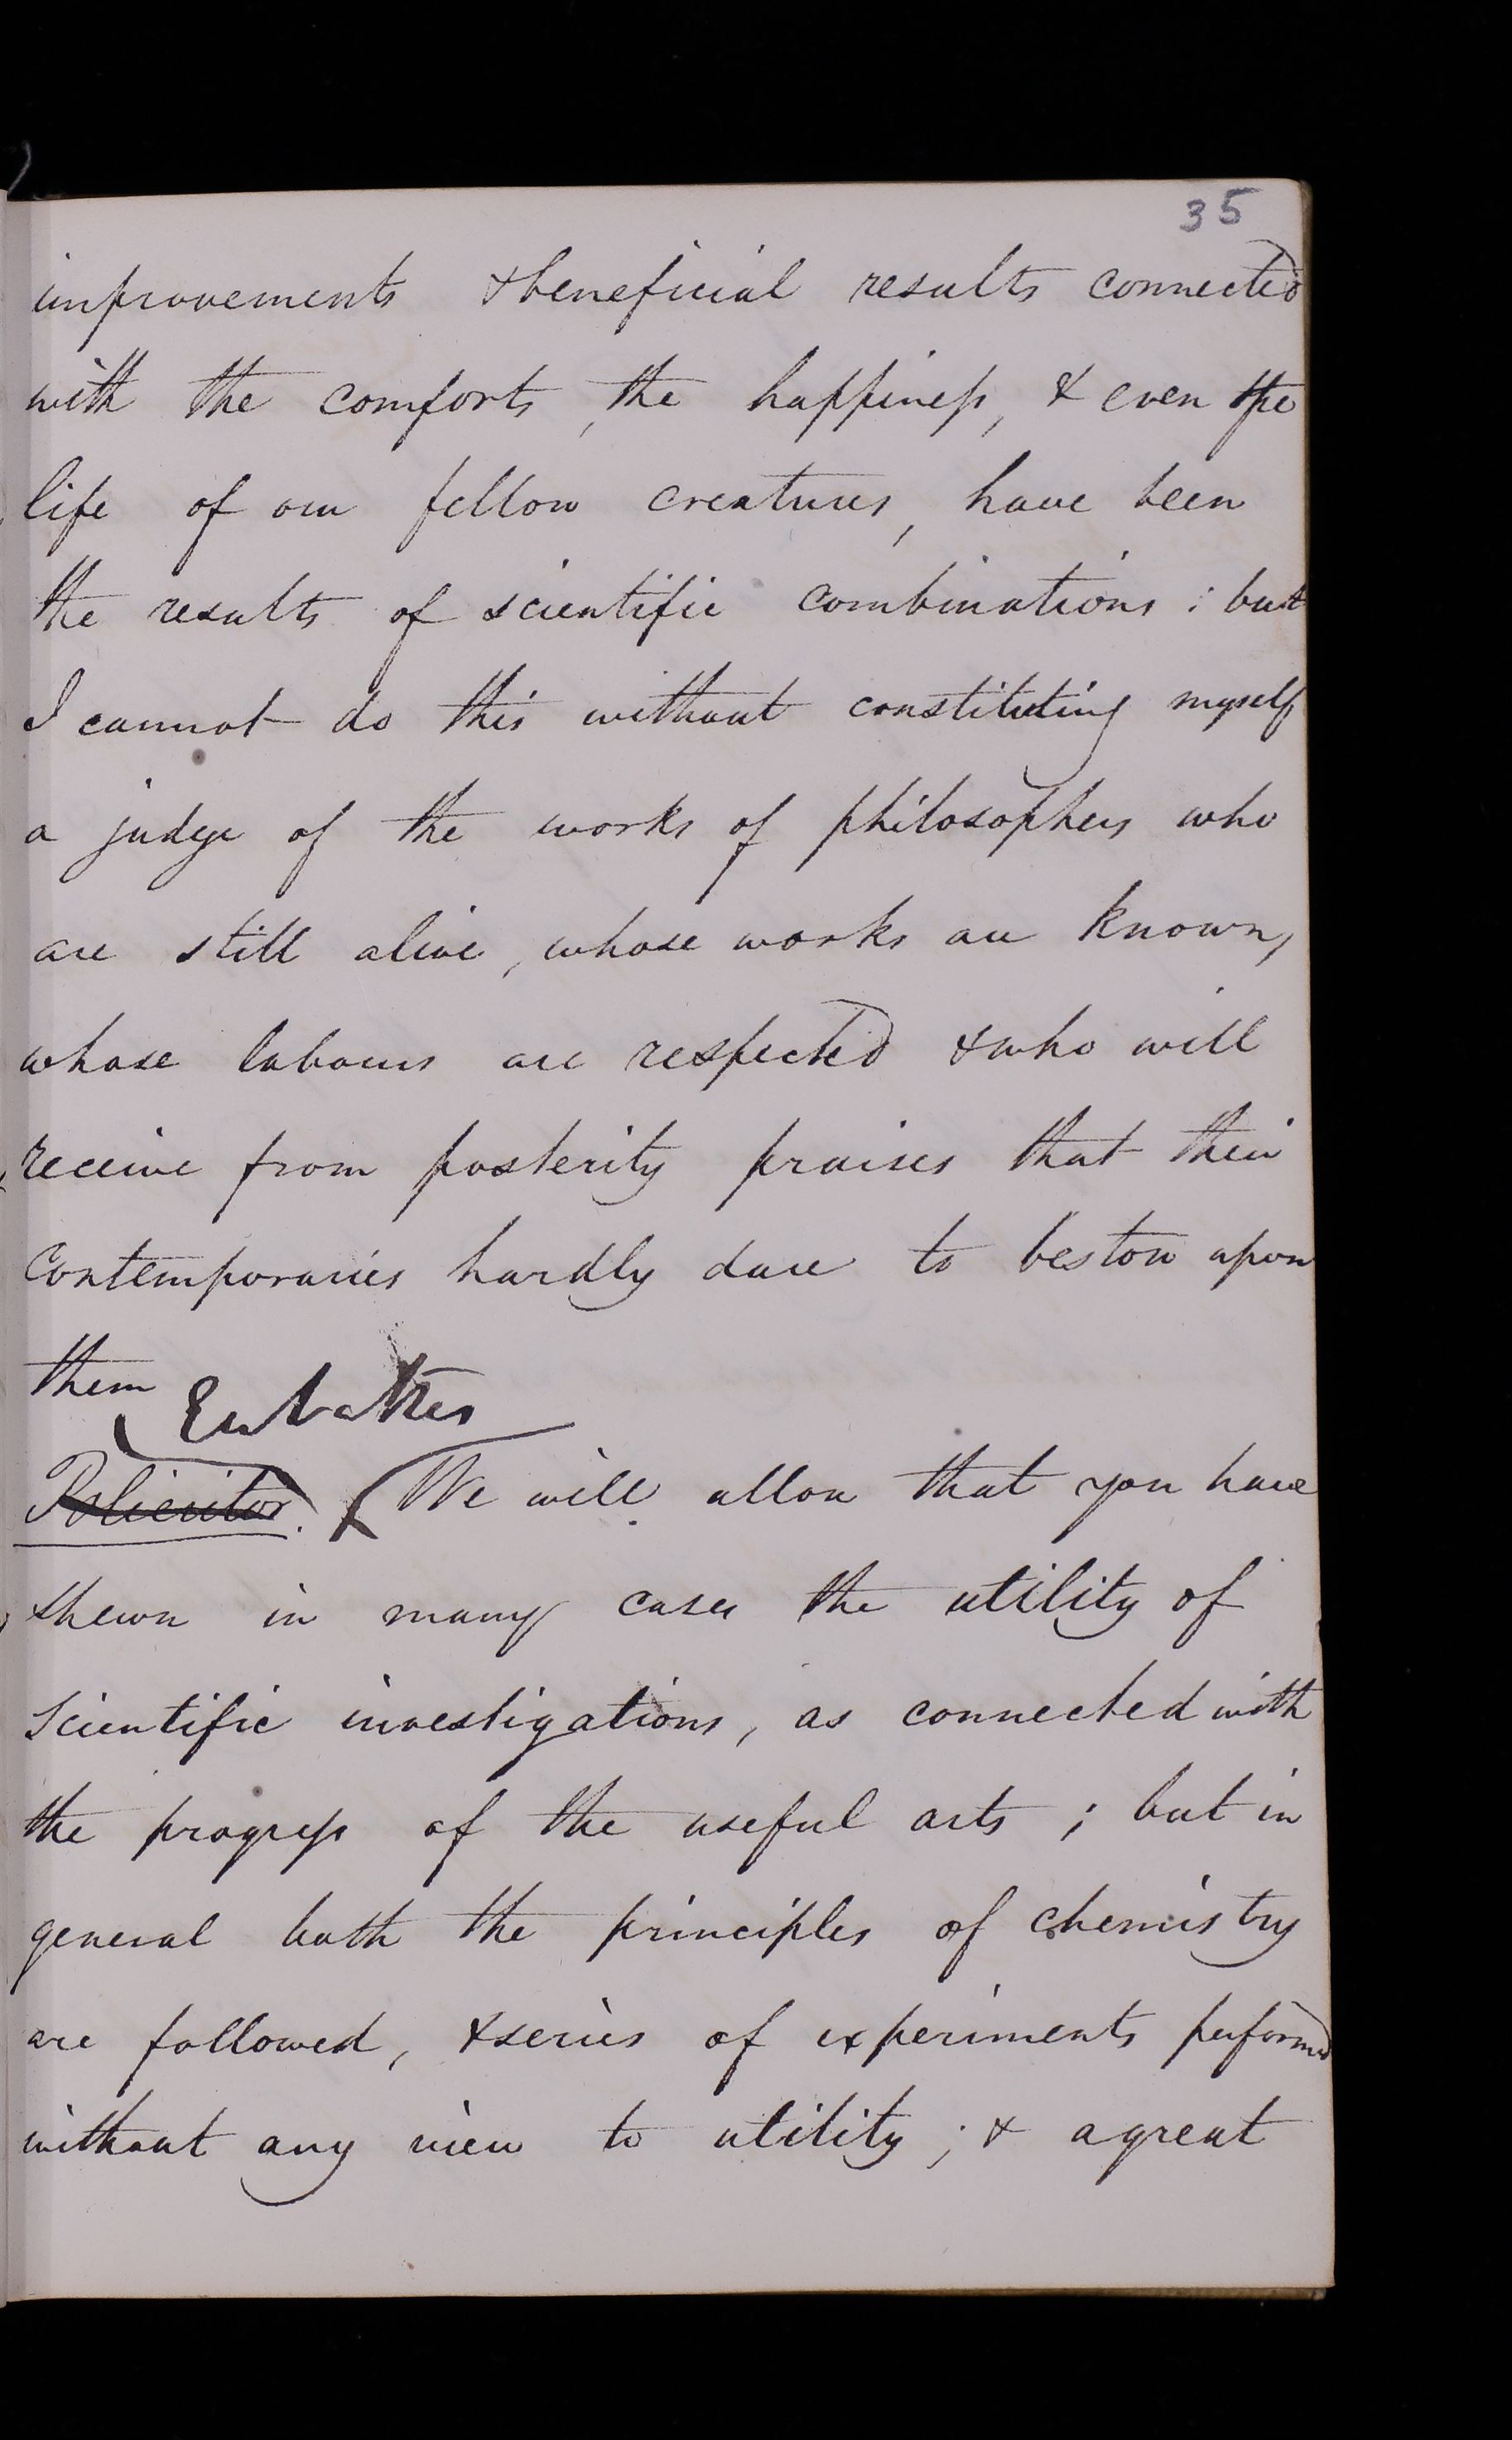 35
improvements & beneficial results connected
with the comforts, the happiness, & even the
life of our fellow creatures, have been
the results of scientific combinations : but
I cannot do this without constituting myself
a judge of the works of philosophers who
are still alive, whose works are known,
whose labours are respected & who will
receive from posterity praises that their
contemporaries hardly dare to bestow upon
them
Eubathes
Policritor. We will allow that you have
shewn in many cases the utility of
scientific investigations, as connected with
the progress of the useful arts ; but in
general both the principles of chemistry
are followed, & series of experiments performed
without any view to utility ; & a great